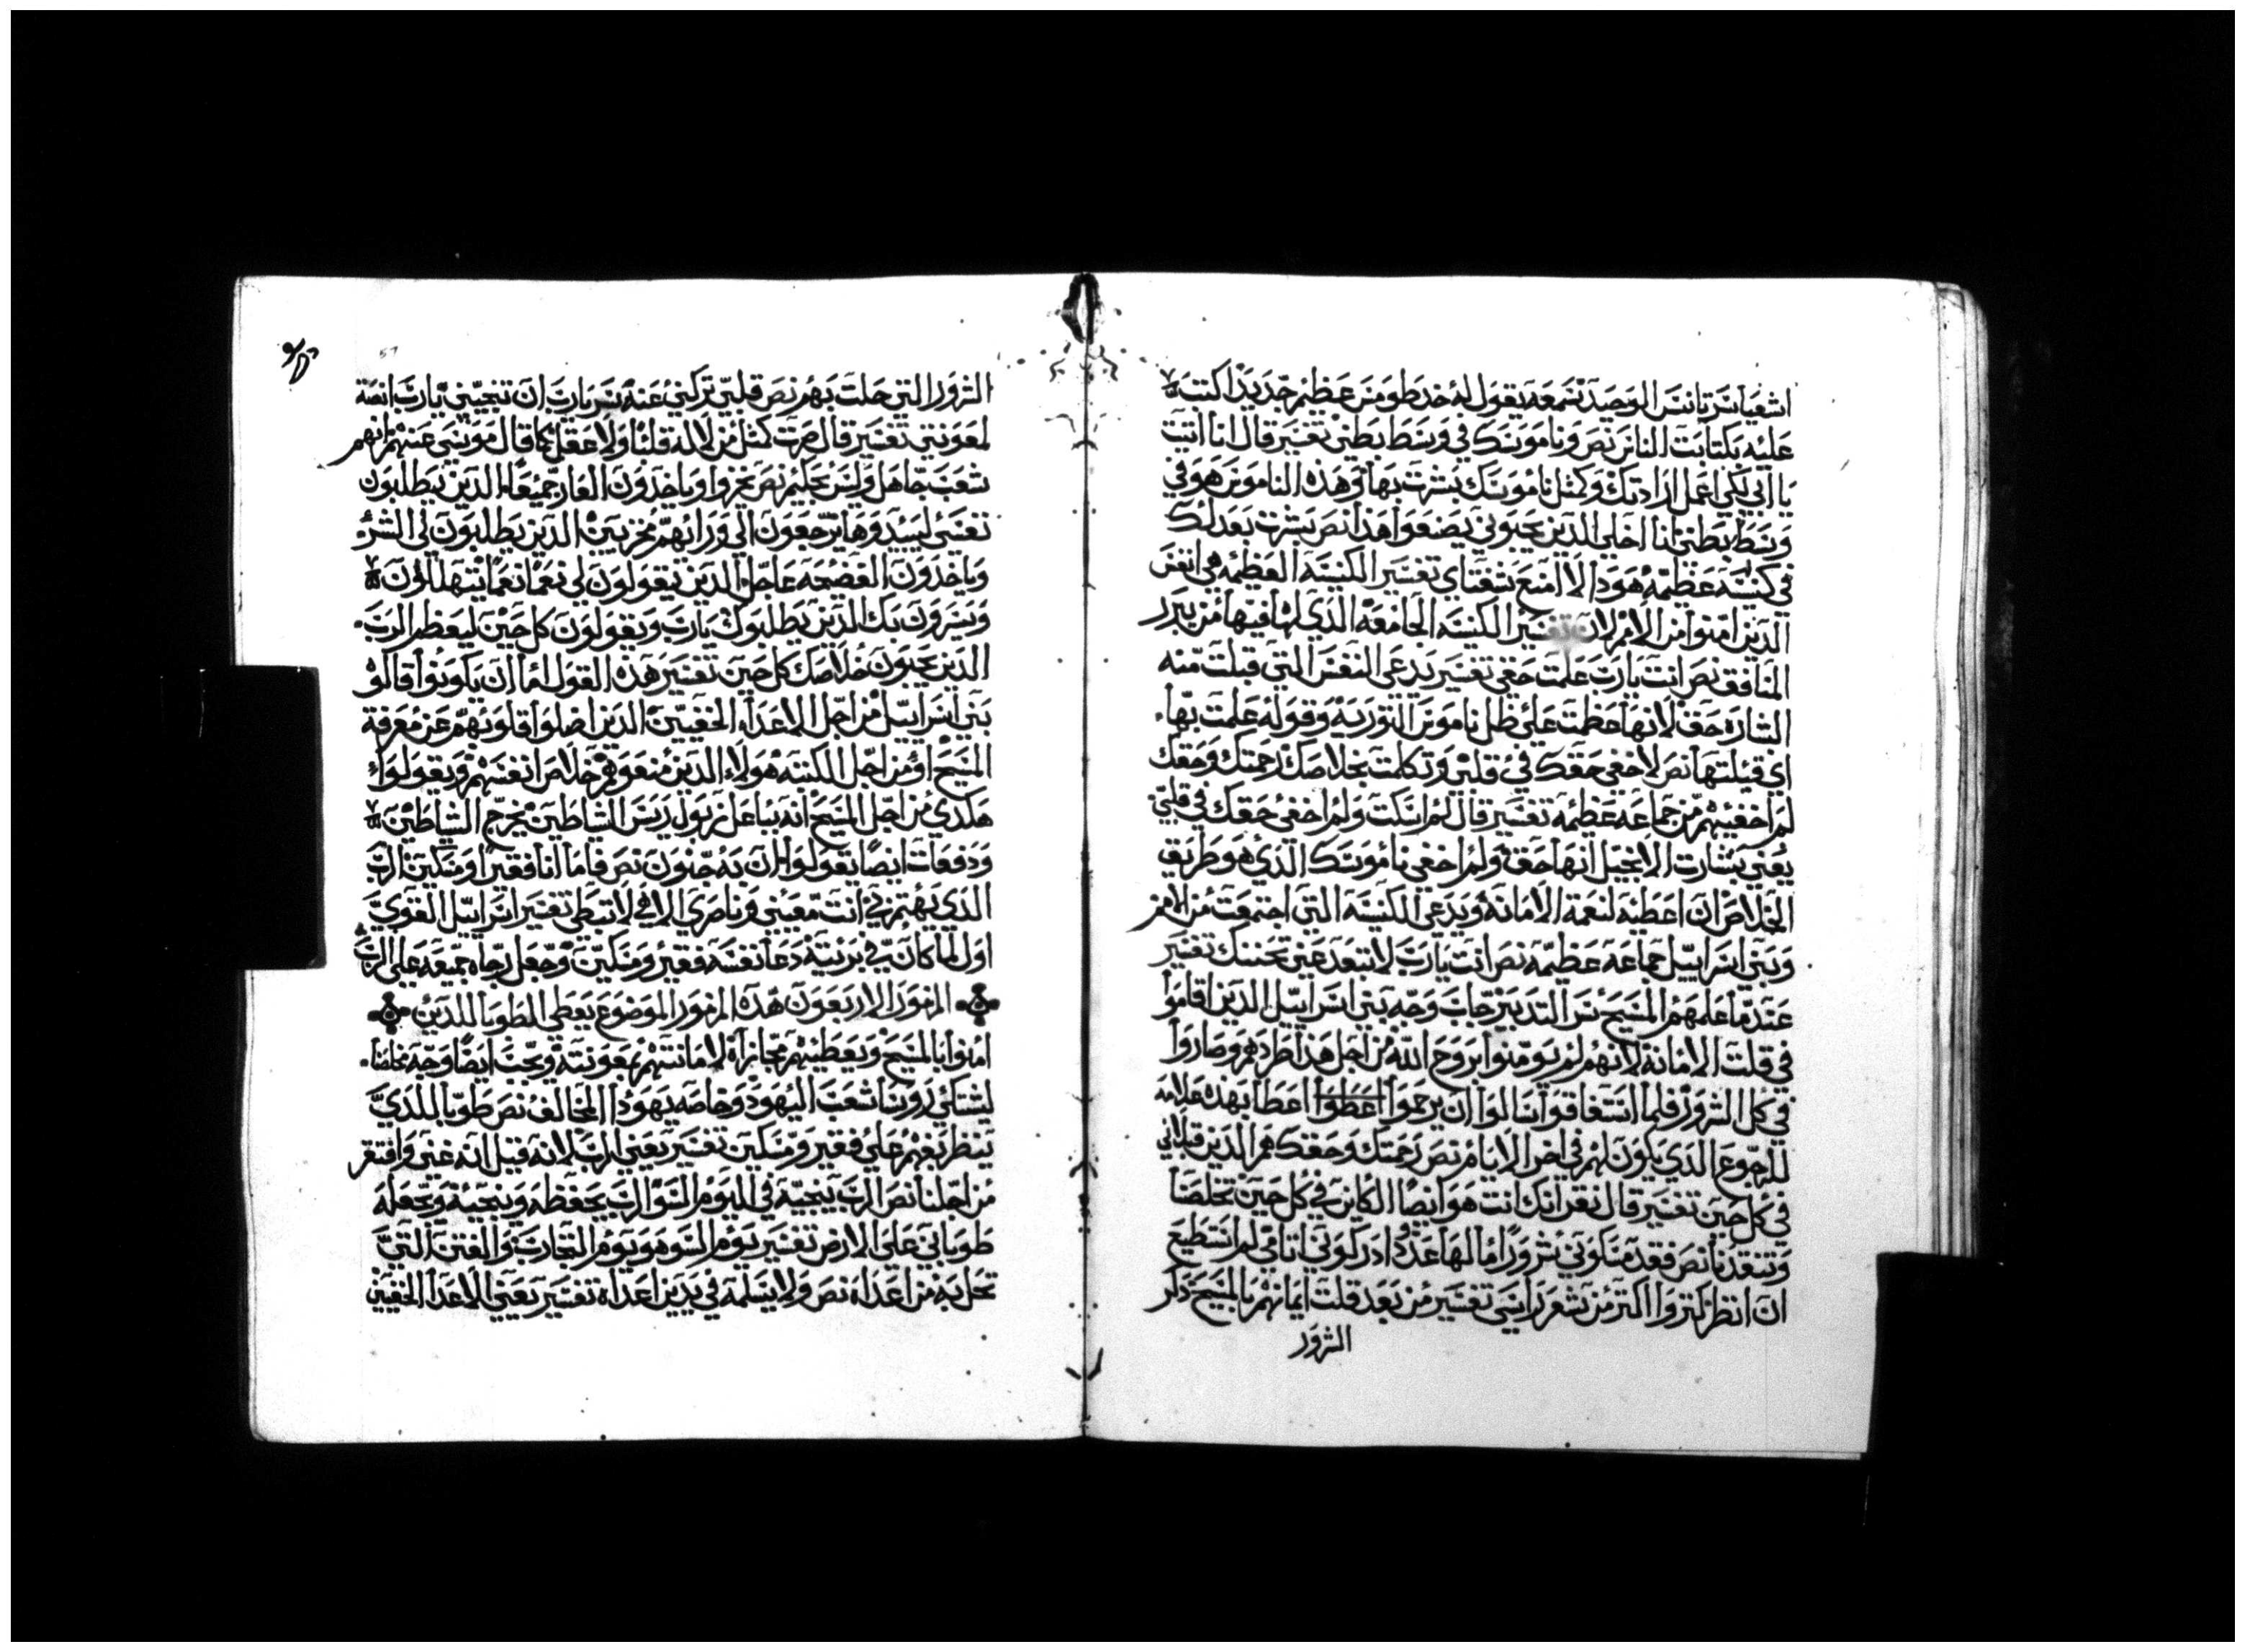 اشعيا سر تانس الوصد نسمعه يقول له خد طومس عظيم جديد اكتب
عليه بكتابت الناس نص وناموسك في وسط بطني تفسير قال انا اتيت
يا ابي لكي اعمل ارادتك وكمثل ناموسك بشرت بها وهذه الناموس هو في
وسط بطني انا اخلي الدين يحبوني يصنعوا هذا نص بشرت بعدلك
في كنسه عظيمه هودا لا امنع شفتاي تفسير الكنسه العظيمه هي انفس
الدين امنوا من الامم لان تفسير الكنسه الجامعه الذي لها فيها من يبرر
المنافق نص انت يارب علمت حقي تفسير يدعى النفس التي قبلت منه
البشاره حق لانها عظمت على ظل ناموس التوريه وقوله علمت بها
اي قبلتها نص لا خفي حقك في قلبي وتكلمت بخلاصك رحمتك وحقك
لم اخفيهم من جماعه عظيمه تفسير قال لم اسكت ولم اخفي حقك في قلبي
يعني بشارت الانجيل انها حقه ولم اخفي ناموسك الذي هو طريق
الخلاص ان اعطيه لنعمة الامانه ويدعى الكنسه التي اجتمعت من الامم
وبني اسراييل جماعه عظيمه نص انت يارب لا تبعد عني تحننك تفسير
عندما علمهم المسيح سر التدبير جاب وجه بني اسراييل الدين اقاموا
في قلت الامانه لانهم لم يومنوا بروح الله من اجل هذا طردهم وصاروا
في كل الشرور فلما استفاقوا سالوا ان يرحموا اعطوا اعطا بهده علامه
للرجوع الدي يكون لهم في اخر الايام نص رحمتك وحقك هم الدين قبلاني
في كل حين تفسير قال نقر انك انت هو ايضا الكاين في كل حين تخلصنا
وتنقدنا نص فقد مسكوني شرورا ما لها عدد ادركوني اتامي لم استطيع
ان انظر كتروا اكتر من شعر راسي تفسير من بعد قلت ايمانهم بالمسيح دكر
الشرور
57
الشرور التي حلت بهم نص قلبي تركني عنه سر يارب ان تنجيني يارب انصة
لمعونتي تفسير قال صرت كمثل من لا له قلبا ولا عقل كما قال موسى عنهم انهم
شعب جاهل وليس بحكيم نص يخزوا وياخدون العار جميعا الدين يطلبون
نفسي ليبيدوها يرجعون الى ورائهم مخزيين الدين يطلبون لي الشر
وياخدون الفضيحه عاجلا الدين يقولون لي نعما نعما يتهللون
ويسرون بك الدين يطلبوك يارب ويقولون كل حين ليعظم الرب
الدين يحبون خلاصك كل حين تفسير هذه القول اما ان يكونوا قالوه
بني اسراييل من اجل الاعداء الخفيين الدين اضلوا قلوبهم عن معرفة
المسيح او من اجل الكتبه هولاء الدين منعوهم خلاص انفسهم ويقولوا
هكدى من اجل المسيح انه بباعل زبول ريس الشاطين يخرج الشاطين
ودفعات ايضا يقولوا ان به جنون نص فاما انا فقير ومسكين الرب
الدي يهتم بي انت معيني وناصري الاهي لا تبطي تفسير اسراييل القوي
اول لما كان في بريته دعا نفسه فقير ومسكين وجعل رجاه جميعه على الرب
المزمور الاربعون هذه المزمور الموضوع يعطي الطوبا للدين
امنوا بالمسيح ويعطيهم مجازاة لامانتهم بمعونته ويحث ايضا وجه مخلصا
ليشتكي روسا شعب اليهود وخاصه يهودا المخالف نص طوبا للدي
ينظر بفهم على فقير ومسكين تفسير يعني الرب لانه قيل انه غني وافتقر
من اجلنا نص الرب ينجيه في اليوم السو الرب يحفظه وينجيه ويجعله
طوباني على الارض تفسير يوم السو هو يوم التجارب والفتن التي
تحل به من اعداه نص ولا يسلمه في يدين اعداه تفسير يعني الاعدا الخفيين